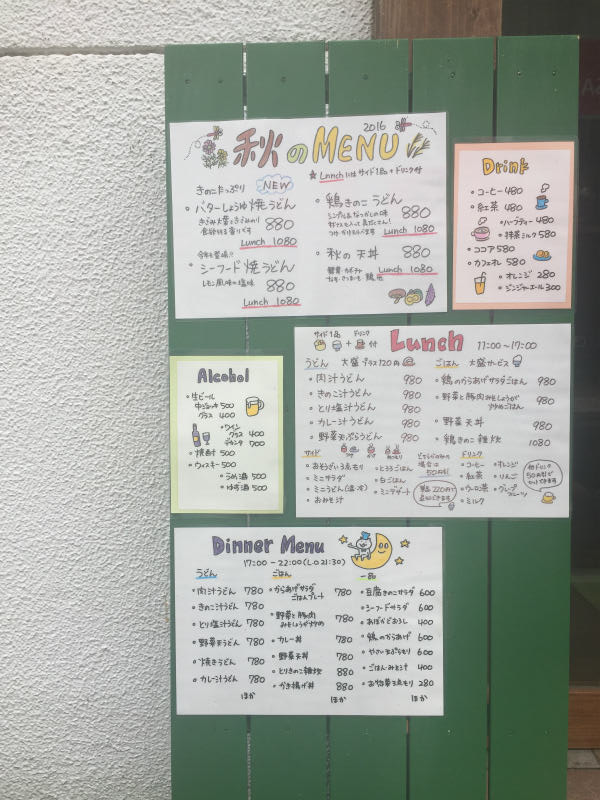 2016
秋のMENU
★Lunchにはサイド1品+ドリンク付
きのこたっぷり
NEW
バターしょうゆ焼うどん
880
Lunch 1080
今年も登場!!
シーフード焼うどん
レモン風味の塩味
880
Lunch 1080
鶏きのこうどん
880
Lunch 1080
秋の天丼 880
Lunch 1080
Drink
コーヒー 480
紅茶 480
ハーブティー 480
抹茶ミルク 580
ココア 580
カフェオレ 580
オレンジ 280
ジンジャーエール 300
Alcohol
生ビール
中ジョッキ 500
グラス 400
ワイン
グラス 400
デカンタ 900
焼酎 500
ウィスキー 500
うめ酒 500
ゆず酒 500
サイド1品 ドリンク
+ 付
Lunch 11:00~17:00
うどん 大盛プラス120円
肉汁うどん 980
きのこ汁うどん 980
とり塩汁うどん 980
カレー汁うどん 980
野菜天ぷらうどん 980
ごはん 大盛サービス
鶏のからあげサラダごはん 980
野菜と豚肉みそしょうが
炒めごはん 980
野菜天丼 980
鶏きのこ雑炊 1080
サイド
おそうざい3点もり
ミニサラダ
ミニうどん(温・冷)
おみそ汁
とろろごはん
白ごはん
ミニデザート
どちらかのみの
場合は
50円引
単品220円で
追加できます
ドリンク
コーヒー
紅茶
ウーロン茶
ミルク
オレンジ
りんご
グレープ
フルーツ
他ドリンク
50円引で
セットできます
Dinner Menu
17:00-22:00(L.O 21:30)
うどん
肉汁うどん 780
きのこ汁うどん 780
とり塩汁うどん 780
野菜天うどん 780
焼きうどん 780
カレー汁うどん 780
ほか
ごはん
からあげサラダ
ごはんプレート 780
野菜と豚肉
みそしょうが炒め 780
カレー丼 780
野菜天丼 780
とりきのこ雑炊 880
かき揚げ丼 880
ほか
一品
豆腐きのこサラダ 600
シーフードサラダ 600
あぼかどおろし 400
鶏のからあげ 600
やさい天ぷらもり 600
ごはんみそ汁 400
お惣菜3点もり 280
ほか